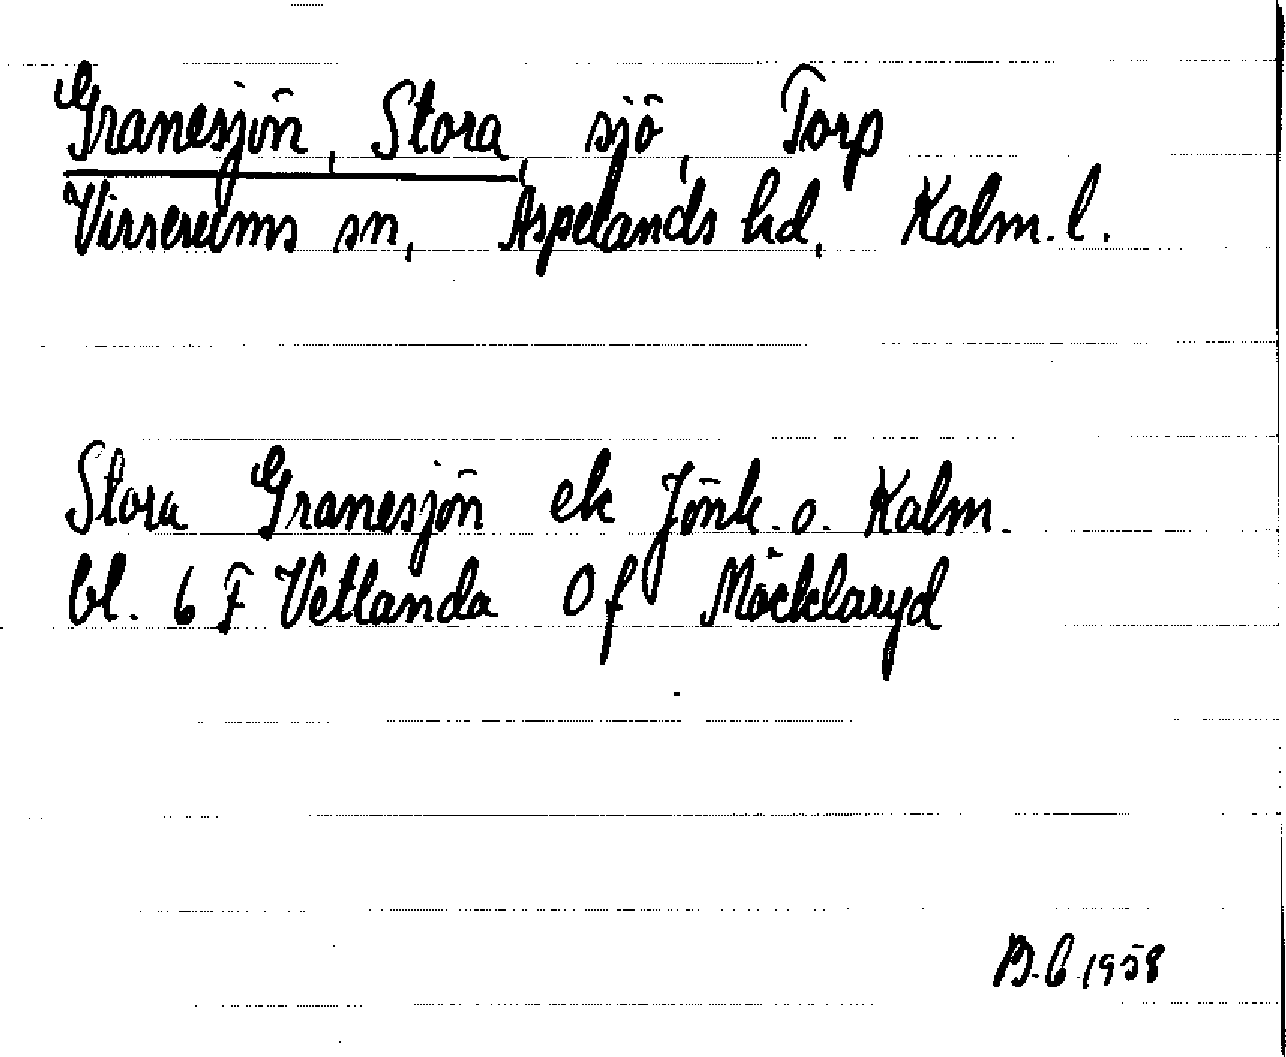 Granesjön, Stora, sjö, Torp
Virserums sn, Aspelands hd, Kalm. l.
Stora Granesjön ek Jönk. o. Kalm.
bl. 6 F Vetlanda 0 f Möcklaryd
B. C 1958